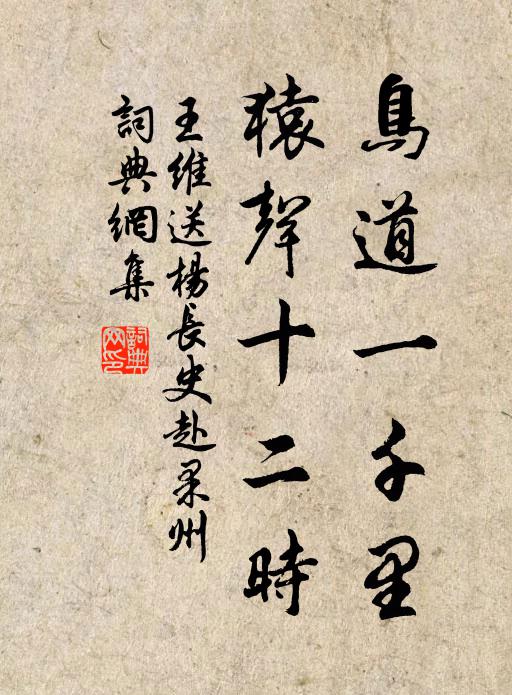 鳥道一千里
猿聲十二時
王維送楊長史赴果州
詞典網集
詞典网印